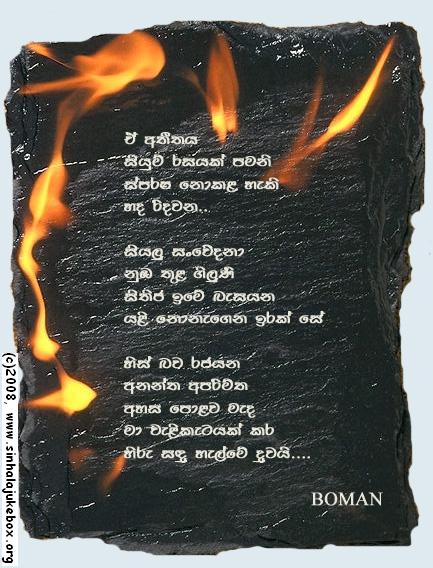 ඒ අතීතය
සියුම් රිසයක් පමනි
ස්පර්ෂ නොකළ හැකි
හද රිදවන..
සියලු සංවේදනා
නුඹ තුළ ගිලුණි
සිතිජ ඉමේ බැසයන
යළි නොනැගෙන ඉරක් සේ
හිස් බව රජයන
අනන්ත අපරිමිත
අහස පොළව මැද
මා වැළිකැටයක් කර
හිරු සඳු හැල්මේ දුවයි....
BOMAN
(c)2008, www.sinhalajukebox.org